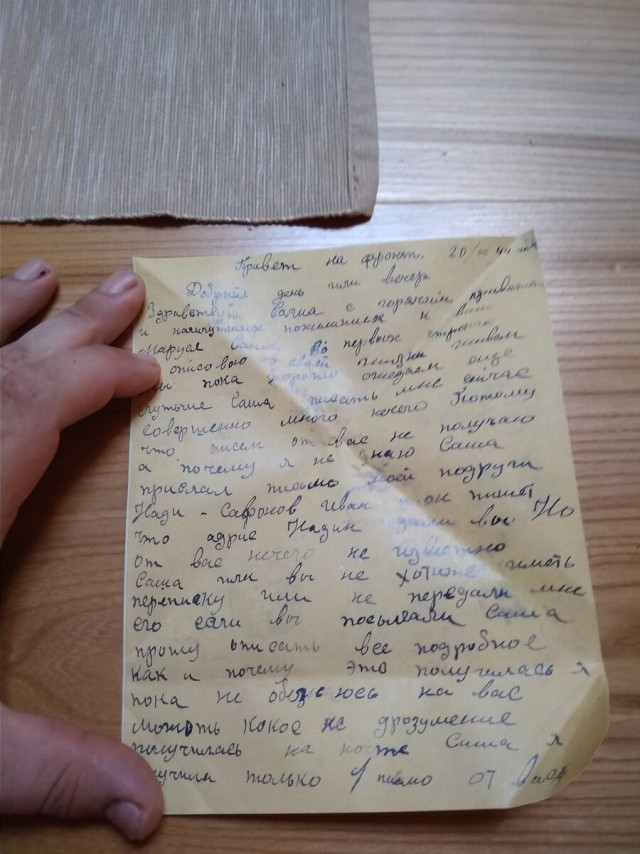 Привет на фронт. 20/ 44
Добрый день или вечер
Здравствуй Саша с горячим приветом
и наилучших пожеланиях к вам
Маруся Саша Во первых строчках
описоваю о своей жизни живом
мы пока хорошо ожедаем еще
лутьчие Саша писать мне сичас
совершенно много нечего Потому
что писем от вас не получаю
а почему я не знаю Саша
прислал письмо моей подруги
Нади - Сафонов Иван и он пишит
что адрис Надин дали вы Но
от вас нечего не известно
Саша или вы не хотите иметь
переписку или не передали мне
его если вы посылали Саша
прошу описать все подробное
как и почему это получилась я
пока не обежаюсь на вас
можеть какое не дрозумение
получилась на почте Саша я
получила только 1 письмо от вас